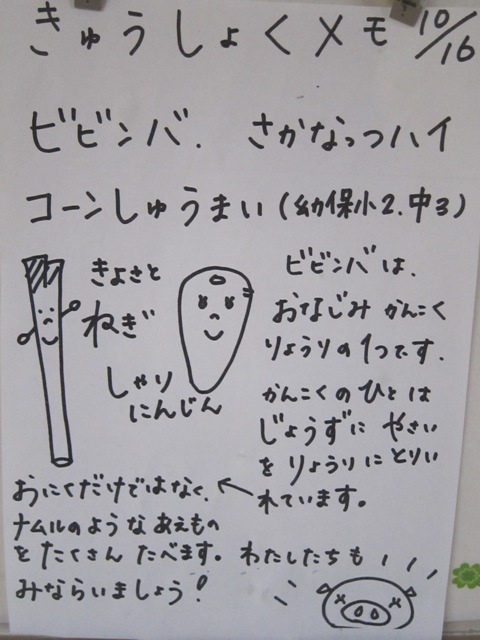 きゅうしょくメモ 10/16
ビビンバ. さかなっつハイ
コーンしゅうまい(幼保小2.中3)
きよさと
ねぎ
しゃり
にんじん
ビビンバは.
おなじみ かんこく
りょうりの1つです.
かんこくのひとは
じょうずに やさい
を りょうりに とりい
れています。
おにくだけではなく、
ナムルのような あえもの
を たくさん たべます。 わたしたちも
みならいましょう!